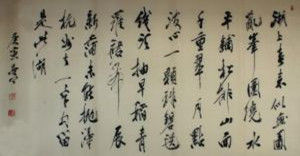 湖上春来似畫圖
亂峯圍繞水
平鋪松排山面
千重翠月點
波心一顆珠碧毯
綫頭抽早稻青
羅裙帶展
新蒲未能抛得
杭州去一半勾留
是此湖
庚寅